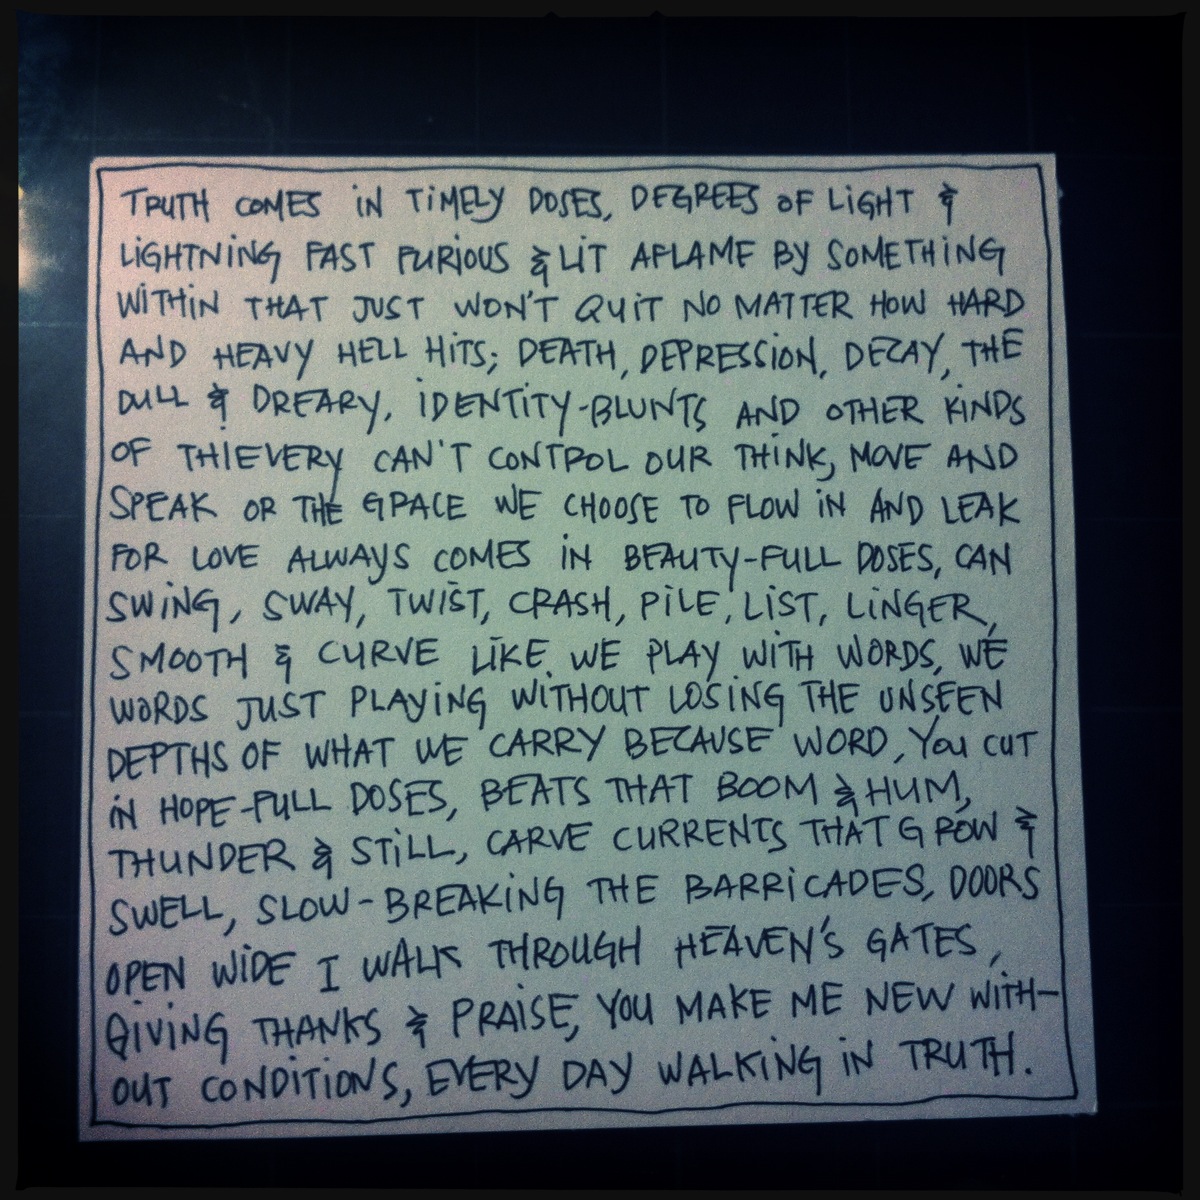 TRUTH COMES IN TIMELY DOSES, DEGREES OF LIGHT &
LIGHTNING FAST FURIOUS & LIT AFLAME BY SOMETHING
WITHIN THAT JUST WON'T QUIT NO MATTER HOW HARD
AND HEAVY HELL HITS; DEATH, DEPRESSION, DECAY, THE
DULL & DREARY, IDENTITY-BLUNTS AND OTHER KINDS
OF THIEVERY CAN'T CONTROL OUR THINK, MOVE AND
SPEAK OR THE GRACE WE CHOOSE TO FLOW IN AND LEAK
FOR LOVE ALWAYS COMES IN BEAUTY-FULL DOSES, CAN
SWING, SWAY, TWIST, CRASH, PILE, LIST, LINGER,
SMOOTH & CURVE LIKE WE PLAY WITH WORDS, WE
WORDS JUST PLAYING WITHOUT LOSING THE UNSEEN
DEPTHS OF WHAT WE CARRY BECAUSE WORD, YOU CUT
IN HOPE-FULL DOSES, BEATS THAT BOOM & HUM,
THUNDER & STILL, CARVE CURRENTS THAT GROW &
SWELL, SLOW-BREAKING THE BARRICADES, DOORS
OPEN WIDE I WALK THROUGH HEAVEN'S GATES,
GIVING THANKS & PRAISE, YOU MAKE ME NEW WITH-
OUT CONDITIONS, EVERY DAY WALKING IN TRUTH.